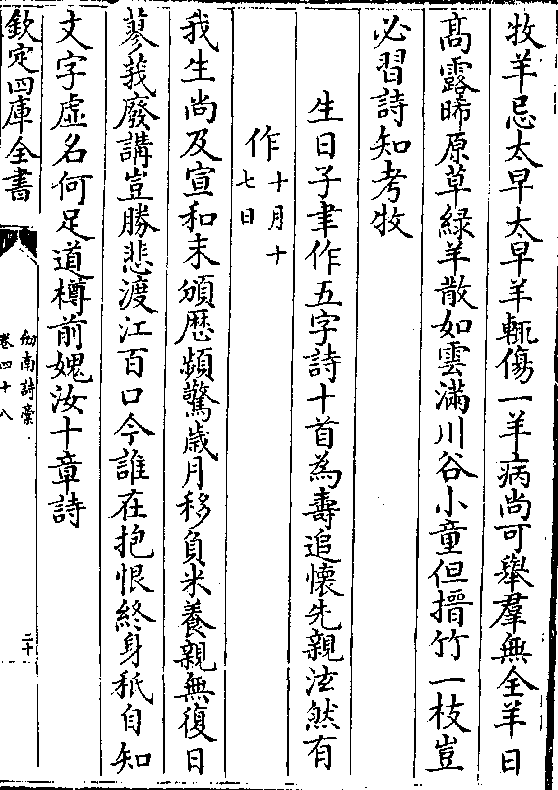 牧羊忌太早太早羊輒傷一羊病尚可舉羣無全羊日
髙露晞原草綠羊散如雲滿川谷小童但搢竹一枝豈
必習詩知考牧
生日子聿作五字詩十首為壽追懐先親泫然有
作十月十七日
我生尚及宣和末頒厯頻驚歳月移負米養親無復日
蓼莪廢講豈勝悲渡江百口今誰在抱恨終身秖自知
文字虛名何足道樽前媿汝十章詩
欽定四庫全書
劎南詩藁
卷四十八
二十